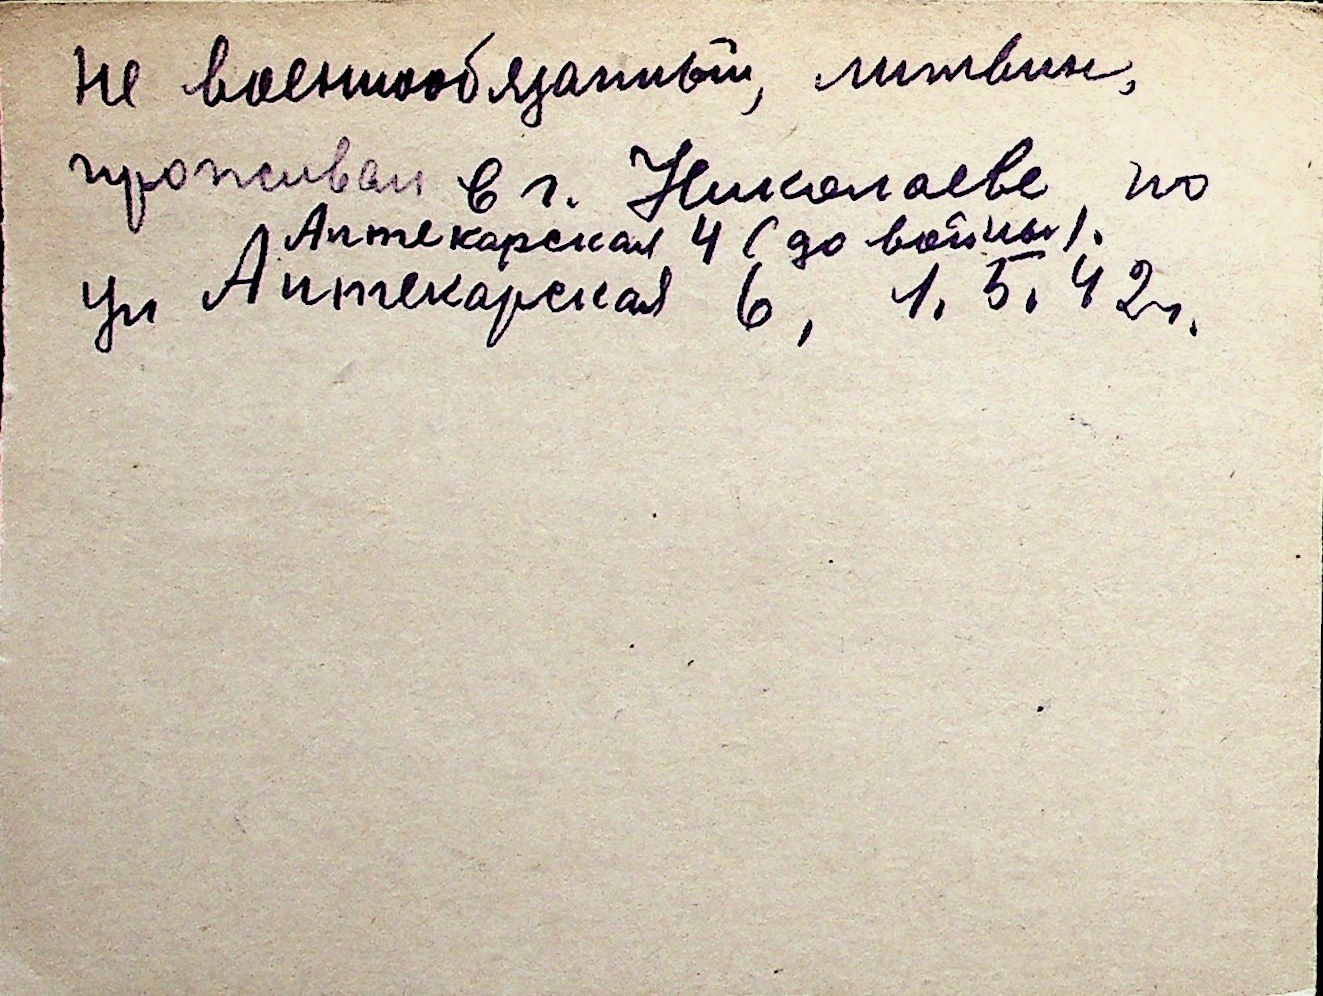 Не военнообязанный, литвин,
проживал в г. Николаеве по
Аптекарская 4 (до войны).
ул Аптекарская 6, 1.5.42г.